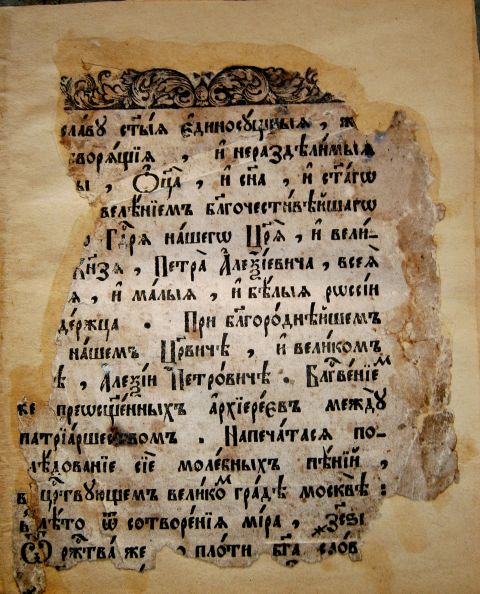 славу ст҃ыѧ є҆диносꙋщныѧ , ж
творѧщїѧ , и҆ нераздѣлимыѧ
ы , Ѻ҆ц҃а̀ , и҆ сн҃а , и҆ ст҃а́гѡ
велѣ́нїемъ бл҃гочести́вѣйшагѡ
Гдⷭ҇рѧ нашегѡ Цр҃ѧ̀ , и҆ вели-
Кнѧ́зѧ , Петра̀ А҆леѯі́евича , всеѧ̀
ѧ , и҆ ма́лыѧ , и҆ бѣ́лыѧ рѡссі́и
держца . При бл҃горо́днѣйшемъ
нашемъ Цр҃вичѣ , и҆ вели́комъ
ѣ , А҆леѯі́и Петро́вичѣ . Бл҃гве́нїемⷨ
же преѡсщ҃е́нныхъ а҆рхїере́євъ междꙋ
патрїа́ршествомъ . Напеча́тасѧ по-
лѣ́дованїе сїѐ моле́бныхъ пѣ́нїй ,
в цр҃твующемъ вели́комⷨ гра́дѣ москвѣ̀ :
в лѣ́то ѿ сотворе́нїѧ мі́ра , ҂зс҃ѕі
Ѿ рж҃тва̀ же , пло́ти бг҃а сло́в